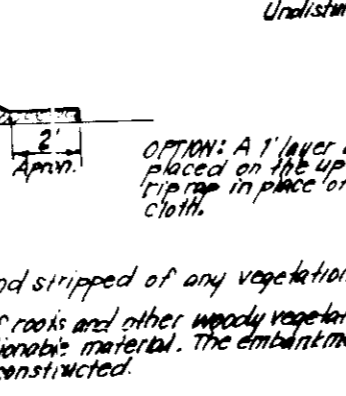 Undistu
2'
Apron.
OPTION: A 1' layer
placed on the up
rip rap in place of
cloth.
nd stripped of any vegetation
f rooks and other woody vegetat
ionable material. The embankme
constructed.